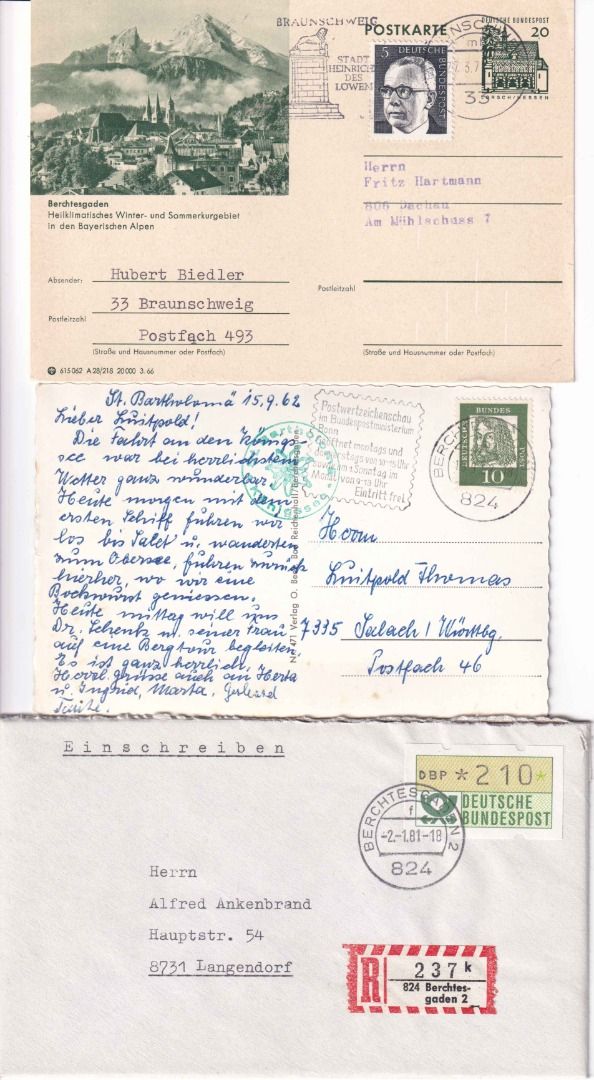 BRAUNSCHWEIG
STADT
HEINRICHS
DES
LÖWEN
POSTKARTE
DEUTSCHE BUNDESPOST
20
LORSCH/HESSEN
5
DEUTSCHE
BUNDESPOST
33
Berchtesgaden
Heilklimatisches Winter- und Sommerkurgebiet
in den Bayerischen Alpen
Herrn
Fritz Hartmann
806 Dachau
Am Mühlschuss 7
Absender:
Hubert Biedler
33 Braunschweig
Postleitzahl
Postfach 493
(Straße und Hausnummer oder Postfach)
Postleitzahl
(Straße und Hausnummer oder Postfach)
615062 A 28/218 20 000 3. 66
St. Bartholomä 15.9.62
Lieber Luitpold!
Die Fahrt an den Königs-
see war bei herrlichstem
Wetter ganz wunderbar.
Heute morgen mit dem
ersten Schiff fuhren wir
los bis Salet u. wanderten
zum Obersee, fuhren zurück
hierher, wo wir eine
Bockwurst geniessen.
Heute mittag will uns
Dr. Schenk u. seiner Frau
auf eine Bergtour begleiten.
Es ist ganz herrlich.
Herzl. Grüsse auch an Herta
u. Ingrid, Marta. Gerhard
Postwertzeichenschau
im Bundespostministerium
Bonn
montags und
donnerstags von 10-15 Uhr
1. Sonntag im
Monat von 9-13 Uhr
Eintritt frei
DEUTSCHE
BUNDES
POST
10
824
Verlag O. Bad Reichenhall/Berchtesgaden
Herrn
Luitpold Thomas
7335 Salach / Württbg.
Postfach 46
Einschreiben
DBP *210*
DEUTSCHE
BUNDESPOST
BERCHTESGADEN 2
f
-2.-1.81-18
824
Herrn
Alfred Ankenbrand
Hauptstr. 54
8731 Langendorf
R
237 k
824 Berchtes-
gaden 2